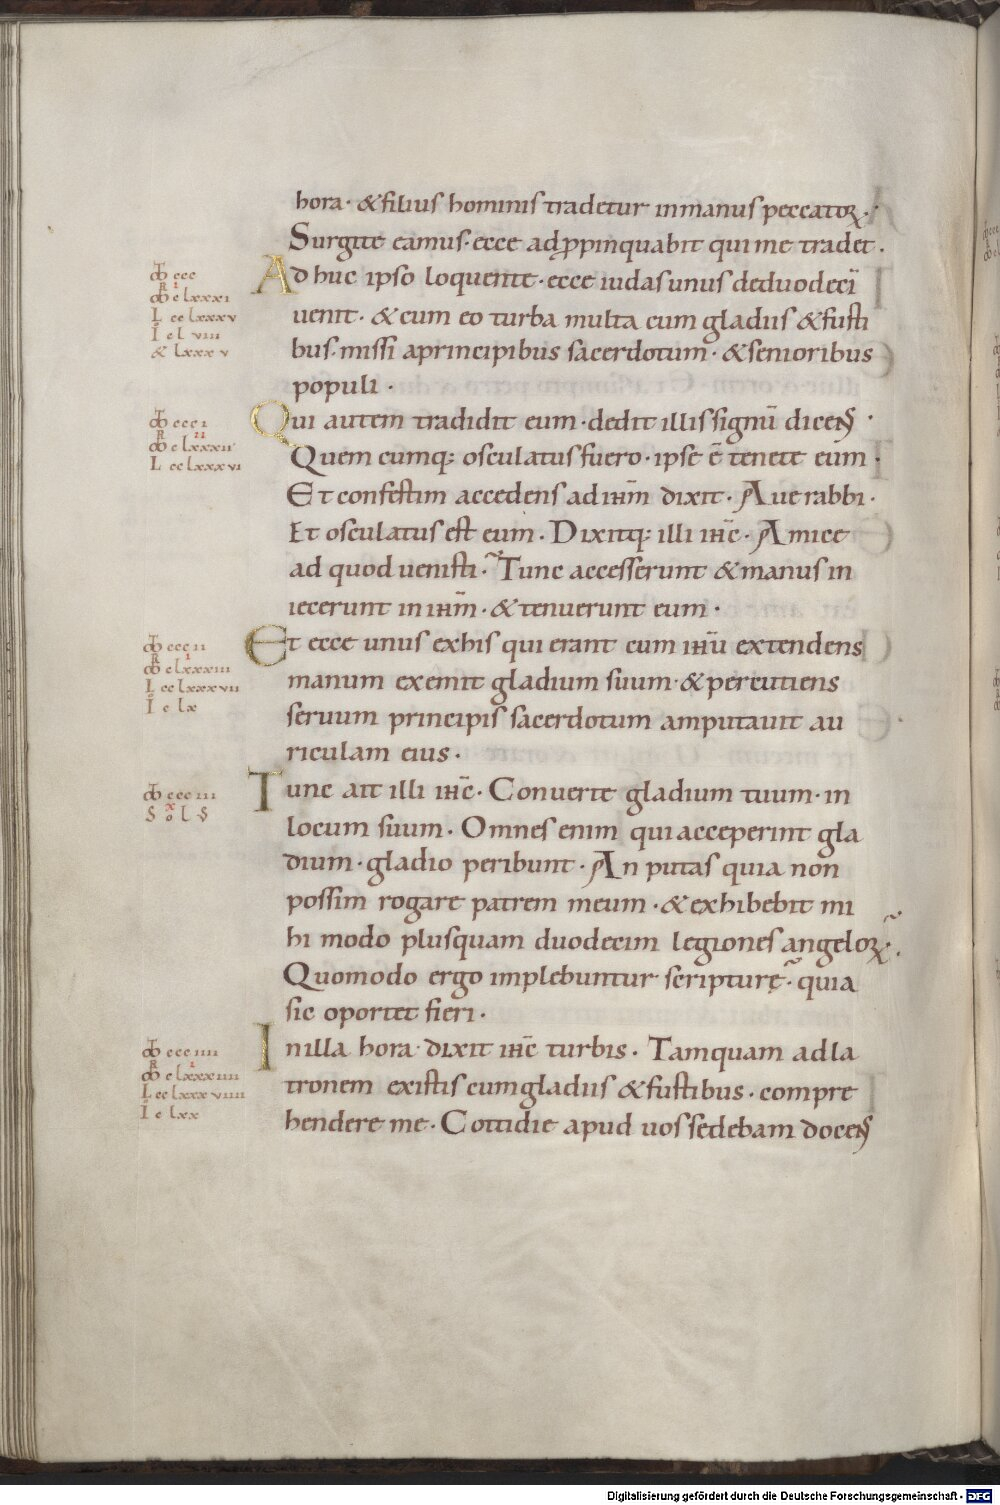 hora· &filius hominis tradetur inmanus peccatoꝝ·
Surgite eamus· ecce adꝓpinquabit quime tradet·
Adhuc ipso loquente· ecce iudas unus deduodecī
uenit· & cum eo turba multa cum gladiis &fusti
bus· missi aprincipibus sacerdotum· &senioribus
populi·
Qui autem tradidit eum· dedit illis signū dicens·
Quem cumq; osculatus fuero· ipse ē tenete eum·
Et confestim accedens ad ihm̄ dixit· Aue rabbi·
Et osculatus est eum· Dixitq; illi ihc̄· Amice
ad quod uenisti·~ Tunc accesserunt &manus in
iecerunt in ihm̄· &tenuerunt eum·
Et ecce unus exhis qui erant cum ihū extendens
manum exemit gladium suum· &percutiens
seruum principis sacerdotum amputauit au
riculam eius·
Tunc ait illi ihc̄· Conuerte gladium tuum· in
locum suum· Omnes enim qui acceperint gla
dium· gladio peribunt· An putas quia non
possim rogare patrem meum· &exhibebit mi
hi modo plusquam duodecim legiones angeloꝝ·~
Quomodo ergo implebuntur scripturę·~ quia
sic oportet fieri·
Inilla hora· dixit ihc̄ turbis· Tamquam adla
tronem existis cumgladiis &fustibus· compre
hendere me· Cottidie apud uos sedebam docens
ccc
c lxxxi
L cclxxxv
I c l viii
& lxxxv
ccci
c lxxxii
L cclxxxvi
cccii
c lxxxiii
L cclxxxvii
I c lx
ccciii
S o L S
ccciiii
c lxxxiiii
L cclxxxviiii
I c lxx
Digitalisierung gefördert durch die Deutsche Forschungsgemeinschaft - DFG